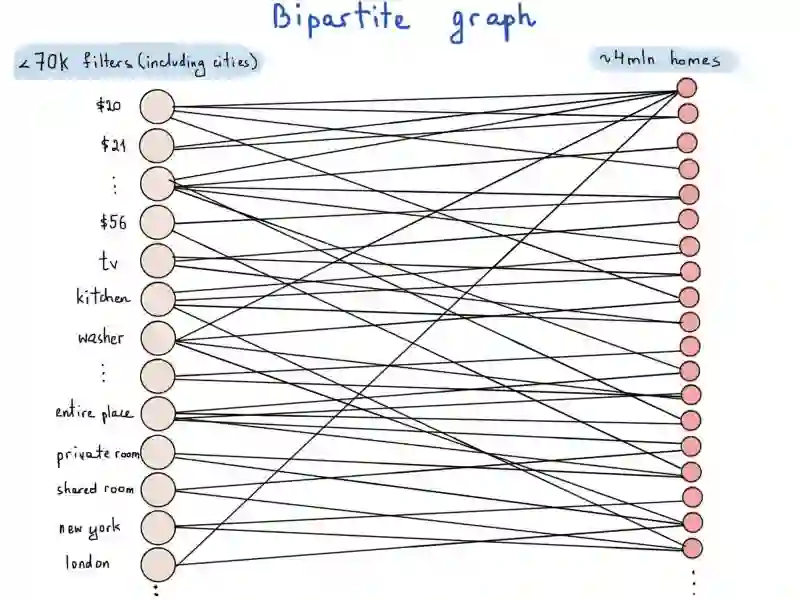 Bipartite graph
< 70k filters (including cities)
~4mln homes
$20
$21
⋮
$56
tv
kitchen
washer
⋮
entire place
private room
shared room
new york
london
⋮
⋮